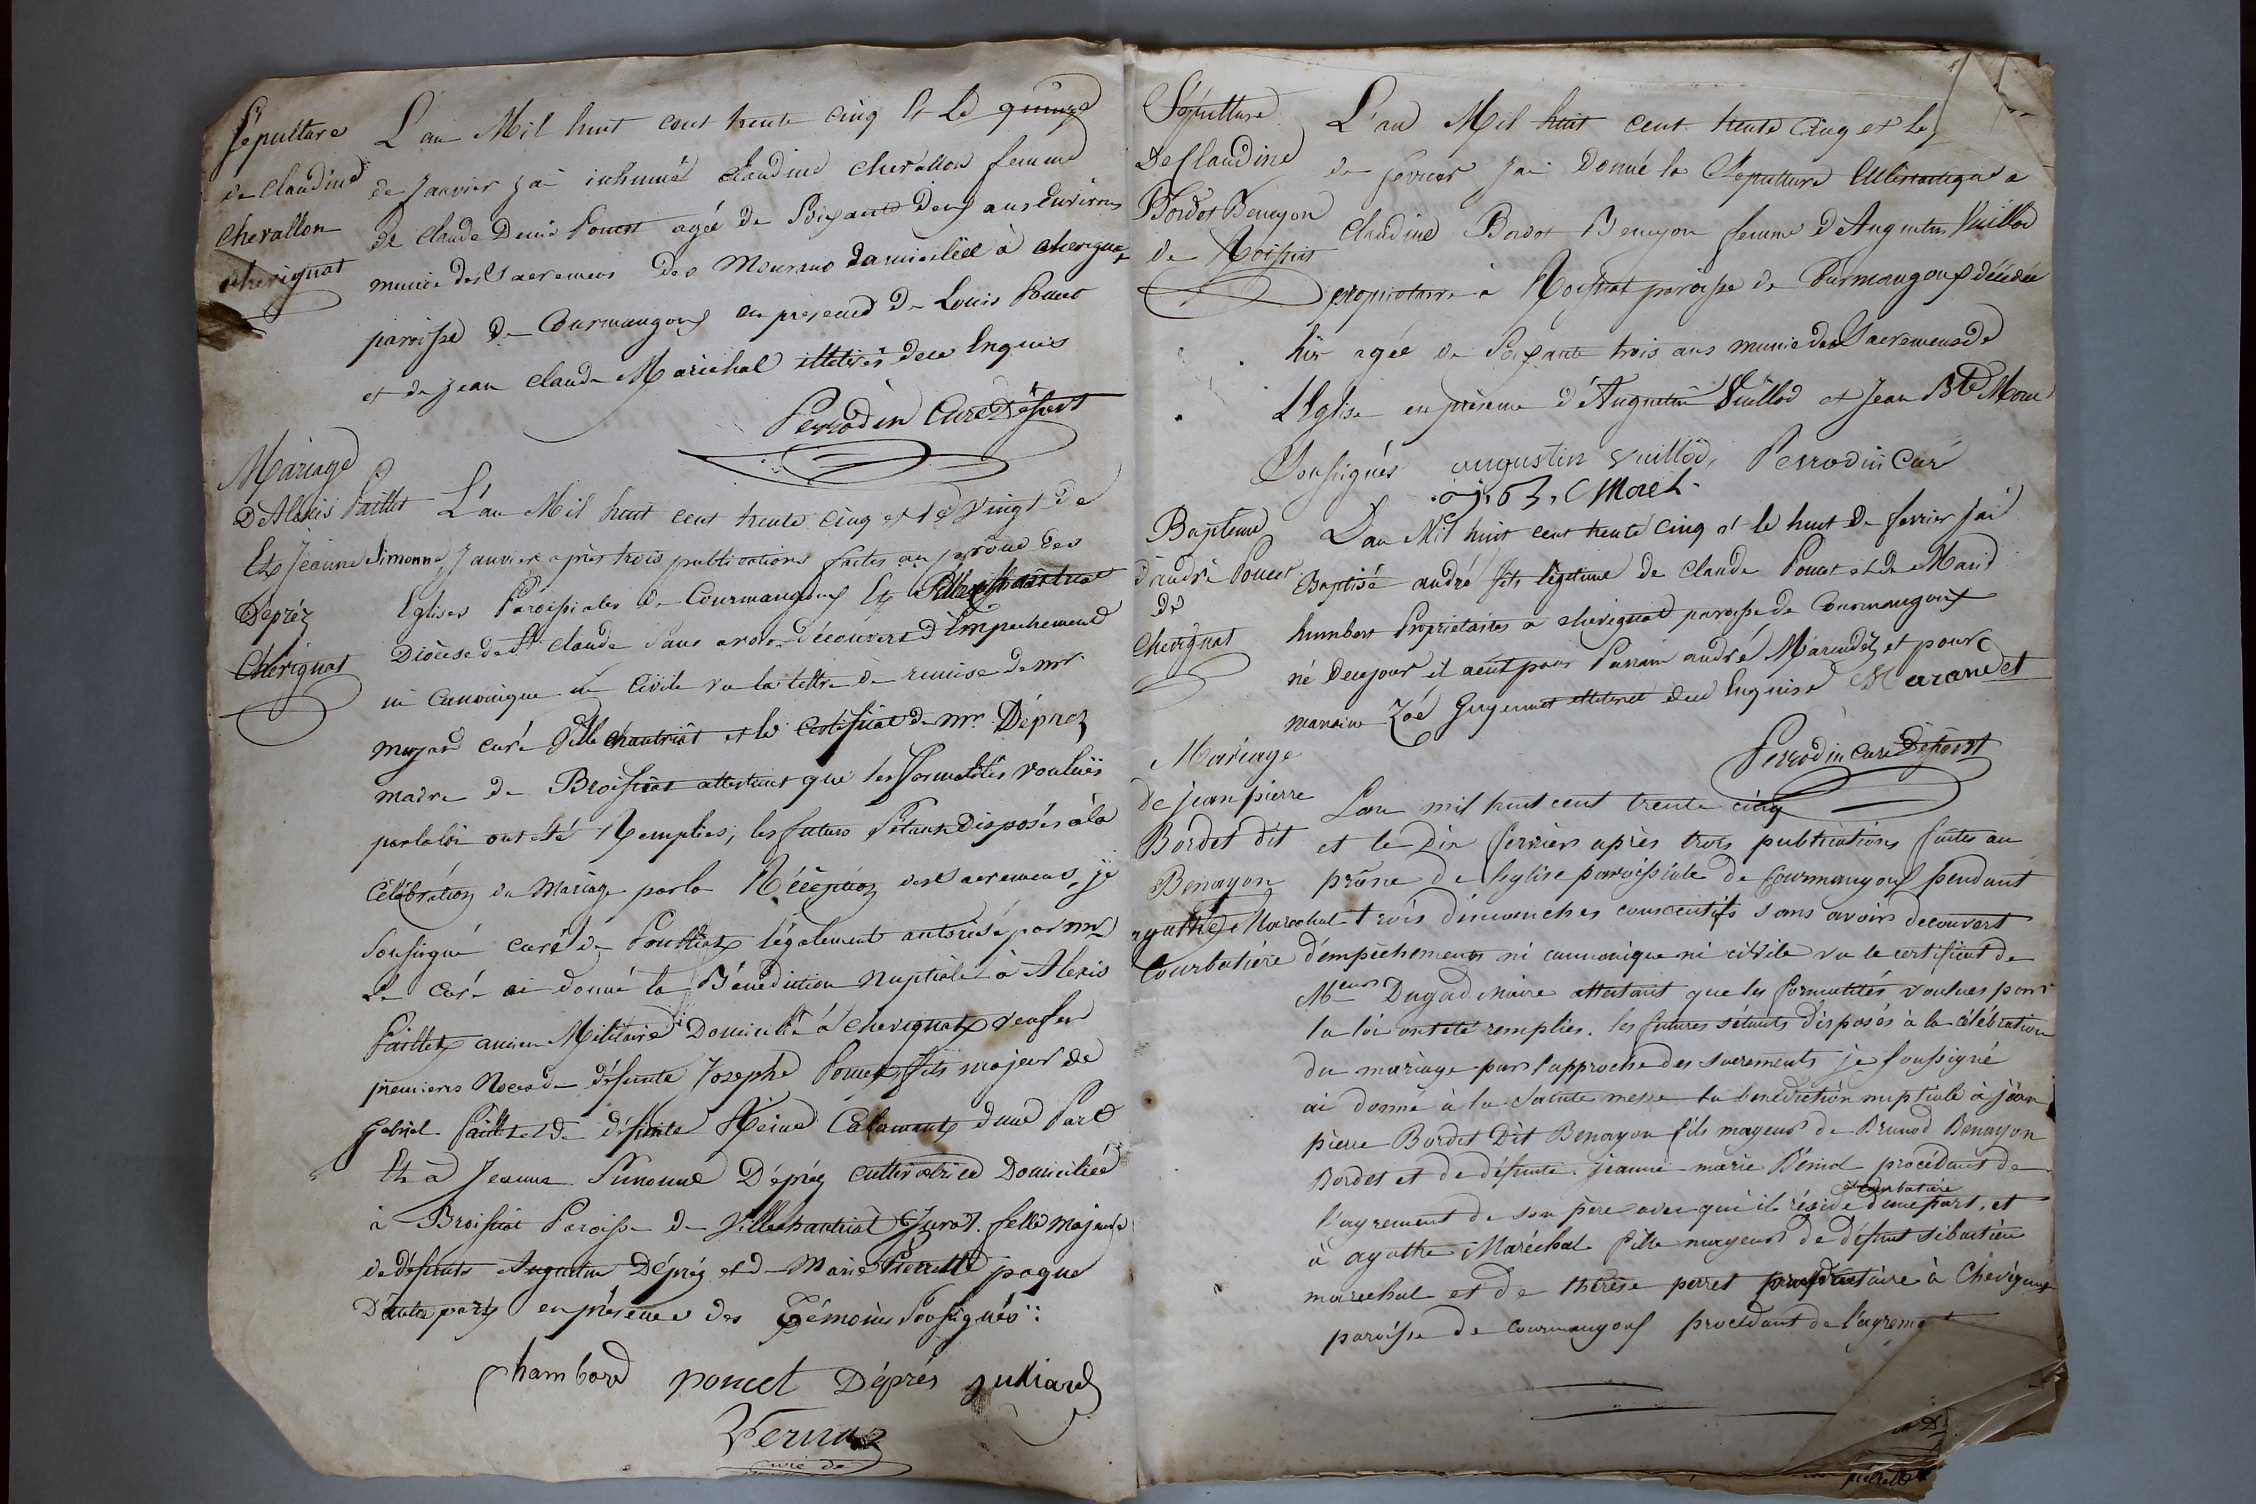 Sépulture
de Claudine
Chevallon
Chevignat
L'an Mil huit cent trente cinq et le quinze
de Janvier j'ai inhumé Claudine Chevallon femme
de Claude Denis Poncet agée de Soixante Deux ans Environ
munie des Sacremens des Mourans domiciliée à Chevignat
paroisse de Courmangoux en présence de Louis Poncet
et de Jean Claude Maréchal illétrés de ce Enquis
Perrodin Curé Déservt
Mariage
D'Alexis Paillet
Et Jeanne Simonne
Depréz
Chevignat
L'an Mil huit cent trente cinq et le Vingt de
Janvier après trois publications faites au prône des
Eglises Paroissiales de Courmangoux Et Villechantriat
Diocèse de St Claude Sans avoir découvert d'Empechement
ni Canonique ni Civile vu la lettre de remise de mr
curé Villechantriat et le Certificat de mr Déprez
maire de Broissiat attestant que les formalités vouluës
par la loi ont été Remplies, les futurs S'étant Disposés à la
Célébration du Mariage par la Réception des Sacremens, je
Soussigné curé de légalement autorisé par mr
Le Curé ai donné la Bénédiction Nuptiale à Alexis
Paillet ancien Militaire Domicilié à Chevignat veuf en
premieres Noces de défunte Josephe Poncet fils majeur de
Gabriel Paillet et de défunte Reine d'une Part
Et à Jeanne Simonne Dépréz cultivatrice Domiciliée
à Broissiat Paroisse de Villechantriat Jura. fille Majeure
de défunts Augustin Dépréz et de Marie Pierrette paque
D'autre part, en présence des Témoins Soussignés :
Chambard poncet Déprés julliard
Vernaz
Sépulture
De Claudine
Bordot Benayon
de Roissiat
L'an Mil huit cent trente Cinq et le
de fevrier J'ai Donné la Sépulture Ecclésiastique a
Claudine Bordot Benayon femme D'Augustin Vuillod
propriétaire à Roissiat paroisse de Curmangoux décédée
hier agée de Soixante trois ans munie des Sacremens de
L'Eglise en présence d'Augustin Vuillod et Jean Bte Morel
Soussignés augustin vuillod, Perrodin Curé
Morel
Bapteme
d'andré Poncet
de
Chevignat
L'an Mil huit cent trente cinq et le huit de fevrier j'ai
Baptisé andré fils légitime de Claude Poncet et de Marie
humbert Propriétaires a chevignat paroisse de Courmangoux
né de ce jour il a eut pour Parrain andré Marandet et pour
maraine Zoé Guyennet illétrée de ce Enquise Marandet
Perrodin Curé Déservt
Mariage
de jean pierre
Bordet dit
Benayon
agathe Marechal
Courbatière
L'an mil huit cent trente cinq
et le dix fevrier après trois publications faites au
prône de l'eglise paroissiale de Courmangoux pendant
trois dimanches consecutifs sans avoir decouvert
d'empêchements ni cannonique ni civile vu le certificat de
Meur Dugad maire attestant que les formalités voulues par
la loi ont été remplies. les futures s'étants disposés à la célébration
du mariage par l'approche des sacrements je soussigné
ai donné à la sainte messe la benediction nuptiale à jean
pierre Bordet Dit Benayon fils mayeur de Brunod Benayon
Bordet et de défunte jeanne marie Béniod procédant de
l'agrement de son père avec qui il réside à courbatière d'une part, et
à agathe Maréchal fille mayeur de défunt sibastien
marechal et de thérèse perret propriétaire à Chevignat
paroisse de courmangoux procedant de l'agrement